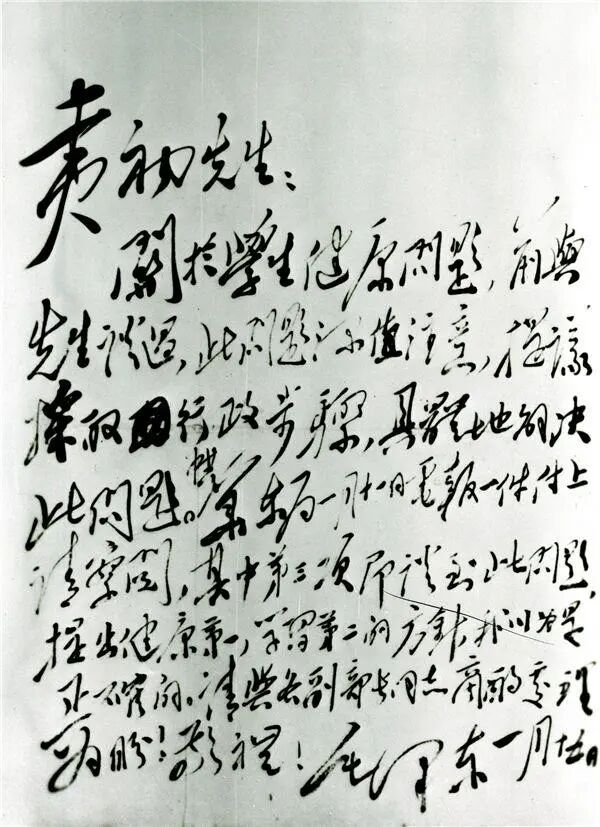 夷初先生:
關於學生健康問題,前與
先生談過,此問題深值注意,提議
採取行政步驟,具體地解決
此問題。中共華東局一月十一日電報一件付上
請察閱,其中第三項即談到此問題,
提出健康第一,學習第二的方針,我以為是
正確的。請與各副部長同志商酌處理
為盼!敬祝!毛泽东 一月十五日